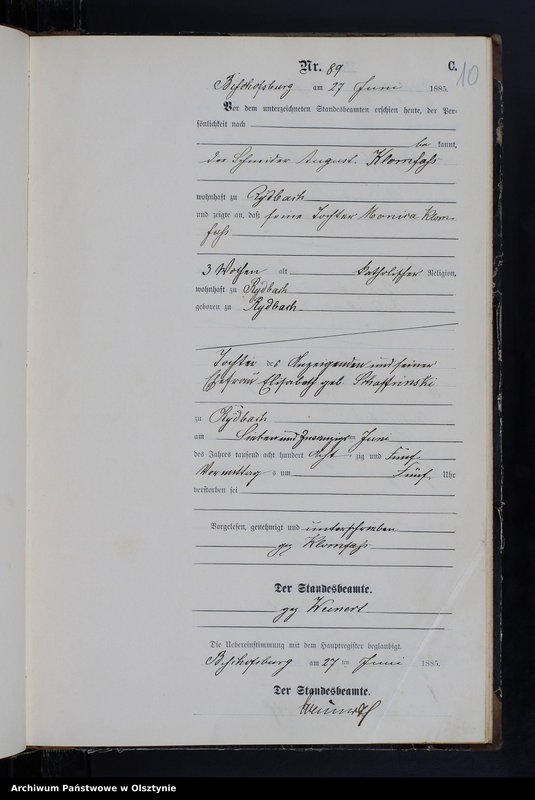 Nr. 89
C.
10
Bischofsburg am 27 Juni 1885.
Vor dem unterzeichneten Standesbeamten erschien heute, der Per-
sönlichkeit nach
be kannt,
der Schneider August Klomfass
wohnhaft zu Rydbach
und zeigte an, daß seine Tochter Monica Klom-
fass
3 Wochen alt katholischer Religion,
wohnhaft zu Rydbach
geboren zu Rydbach
Tochter des Anzeigenden und seiner
Ehefrau Elisabeth geb.
zu Rydbach
am Sieben und zwanzigsten Juni
des Jahres tausend acht hundert Acht zig und Fünf
Vormittag s um Fünf Uhr
verstorben sei
Vorgelesen, genehmigt und unterschrieben
gez Klomfass
Der Standesbeamte.
gez Weinert
Die Uebereinstimmung mit dem Hauptregister beglaubigt.
Bischofsburg am 27 ten Juni 1885.
Der Standesbeamte.
Weinert
Archiwum Państwowe w Olsztynie